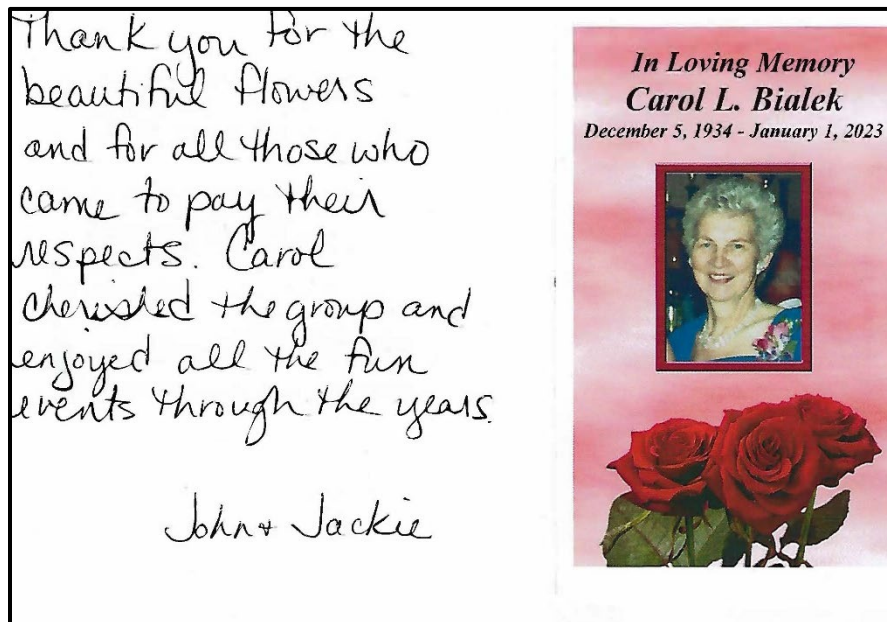 Thank you for the
beautiful flowers
and for all those who
came to pay their
respects. Carol
cherished the group and
enjoyed all the fun
events through the years.
John + Jackie
In Loving Memory
Carol L. Bialek
December 5, 1934 - January 1, 2023